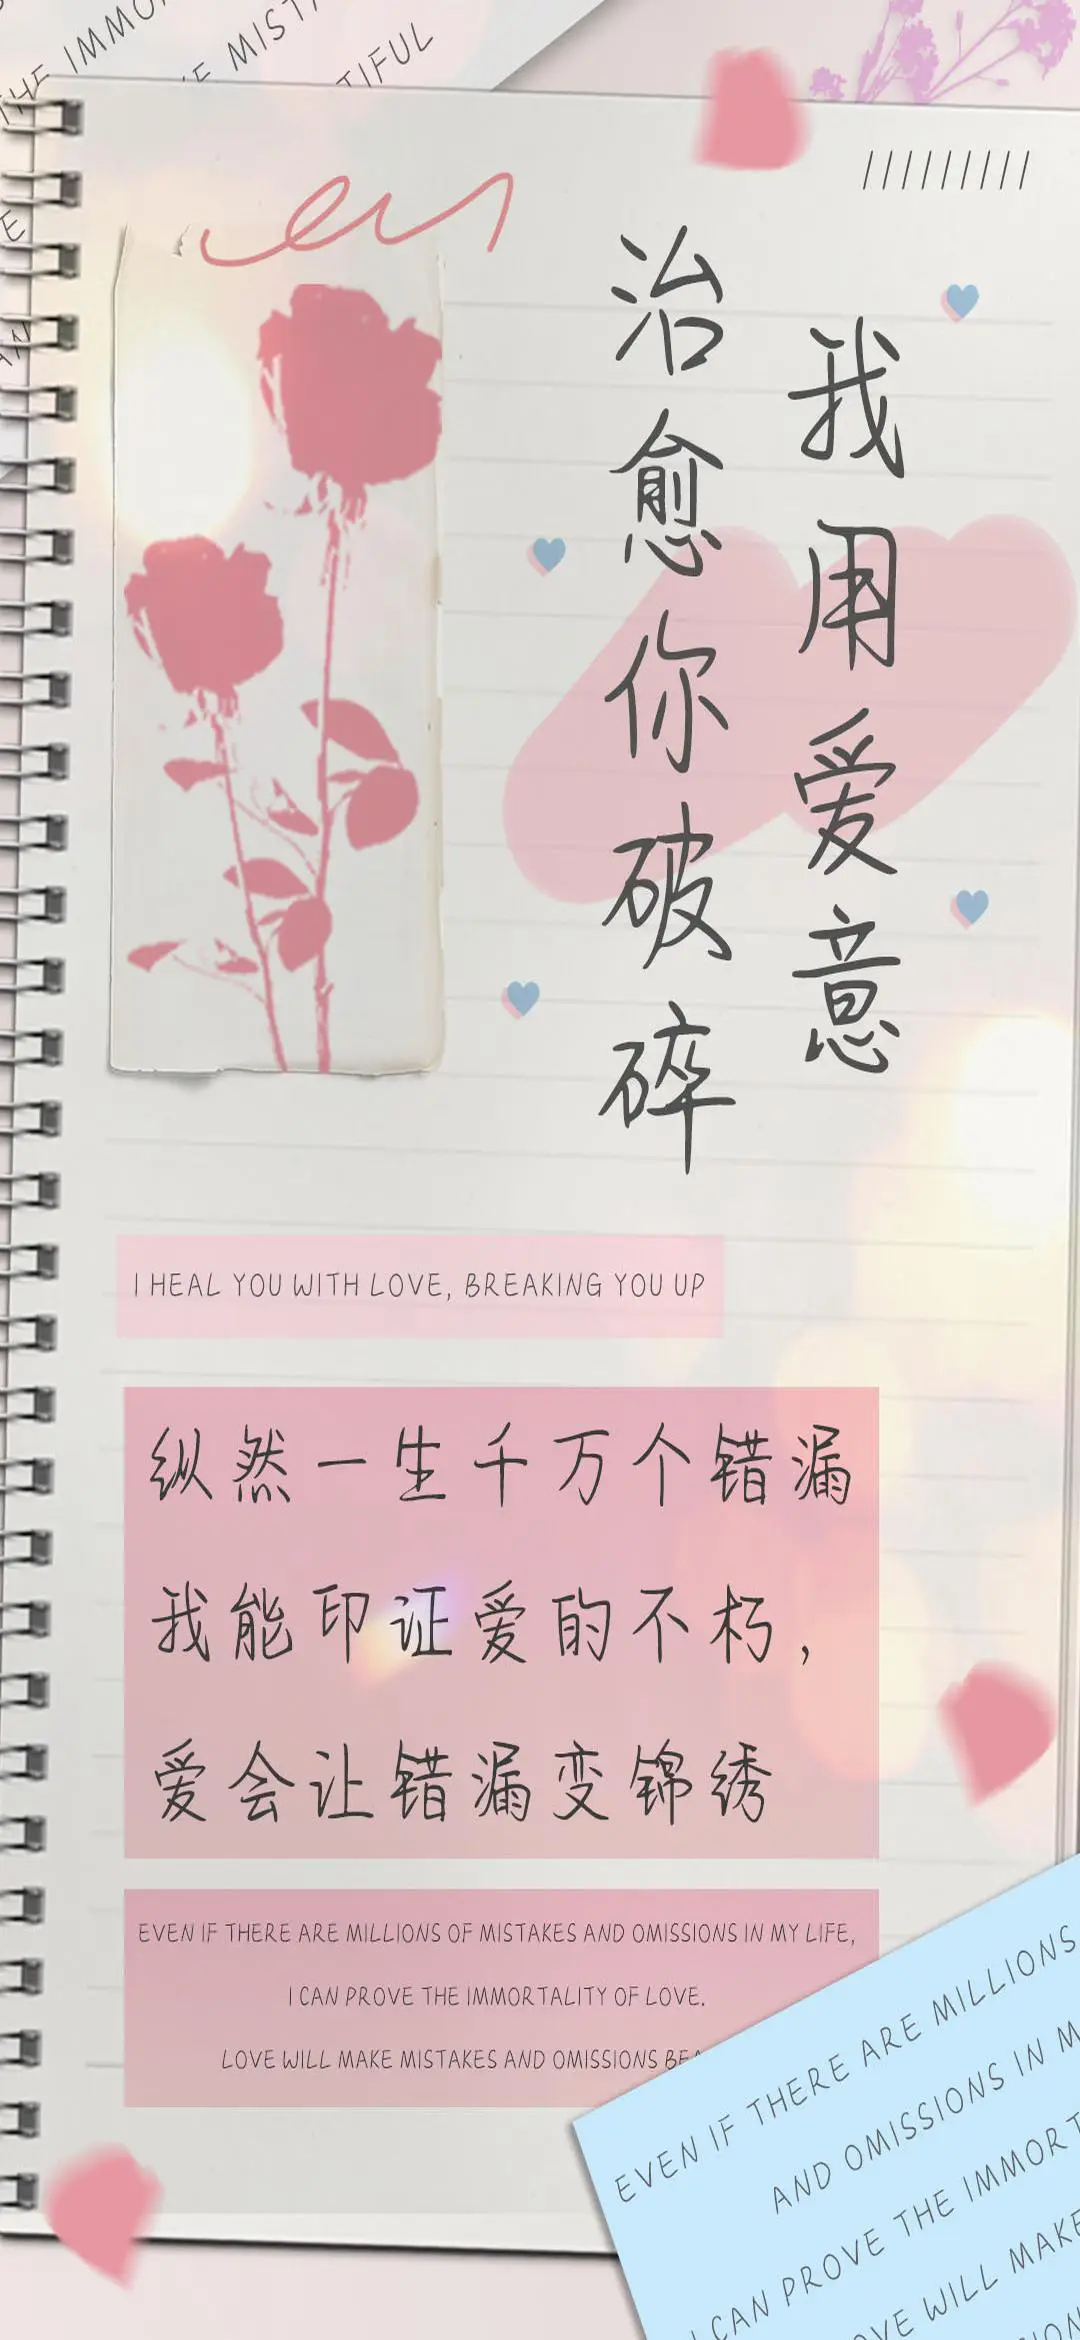 THE IMMOR
E MIST
TIFUL
我用爱意
治愈你破碎
I HEAL YOU WITH LOVE, BREAKING YOU UP
纵然一生千万个错漏
我能印证爱的不朽，
爱会让错漏变锦绣
EVEN IF THERE ARE MILLIONS OF MISTAKES AND OMISSIONS IN MY LIFE,
I CAN PROVE THE IMMORTALITY OF LOVE.
LOVE WILL MAKE MISTAKES AND OMISSIONS BEA
EVEN IF THERE ARE MILLIONS
AND OMISSIONS IN M
I CAN PROVE THE IMMORT
OVE WILL MAKE